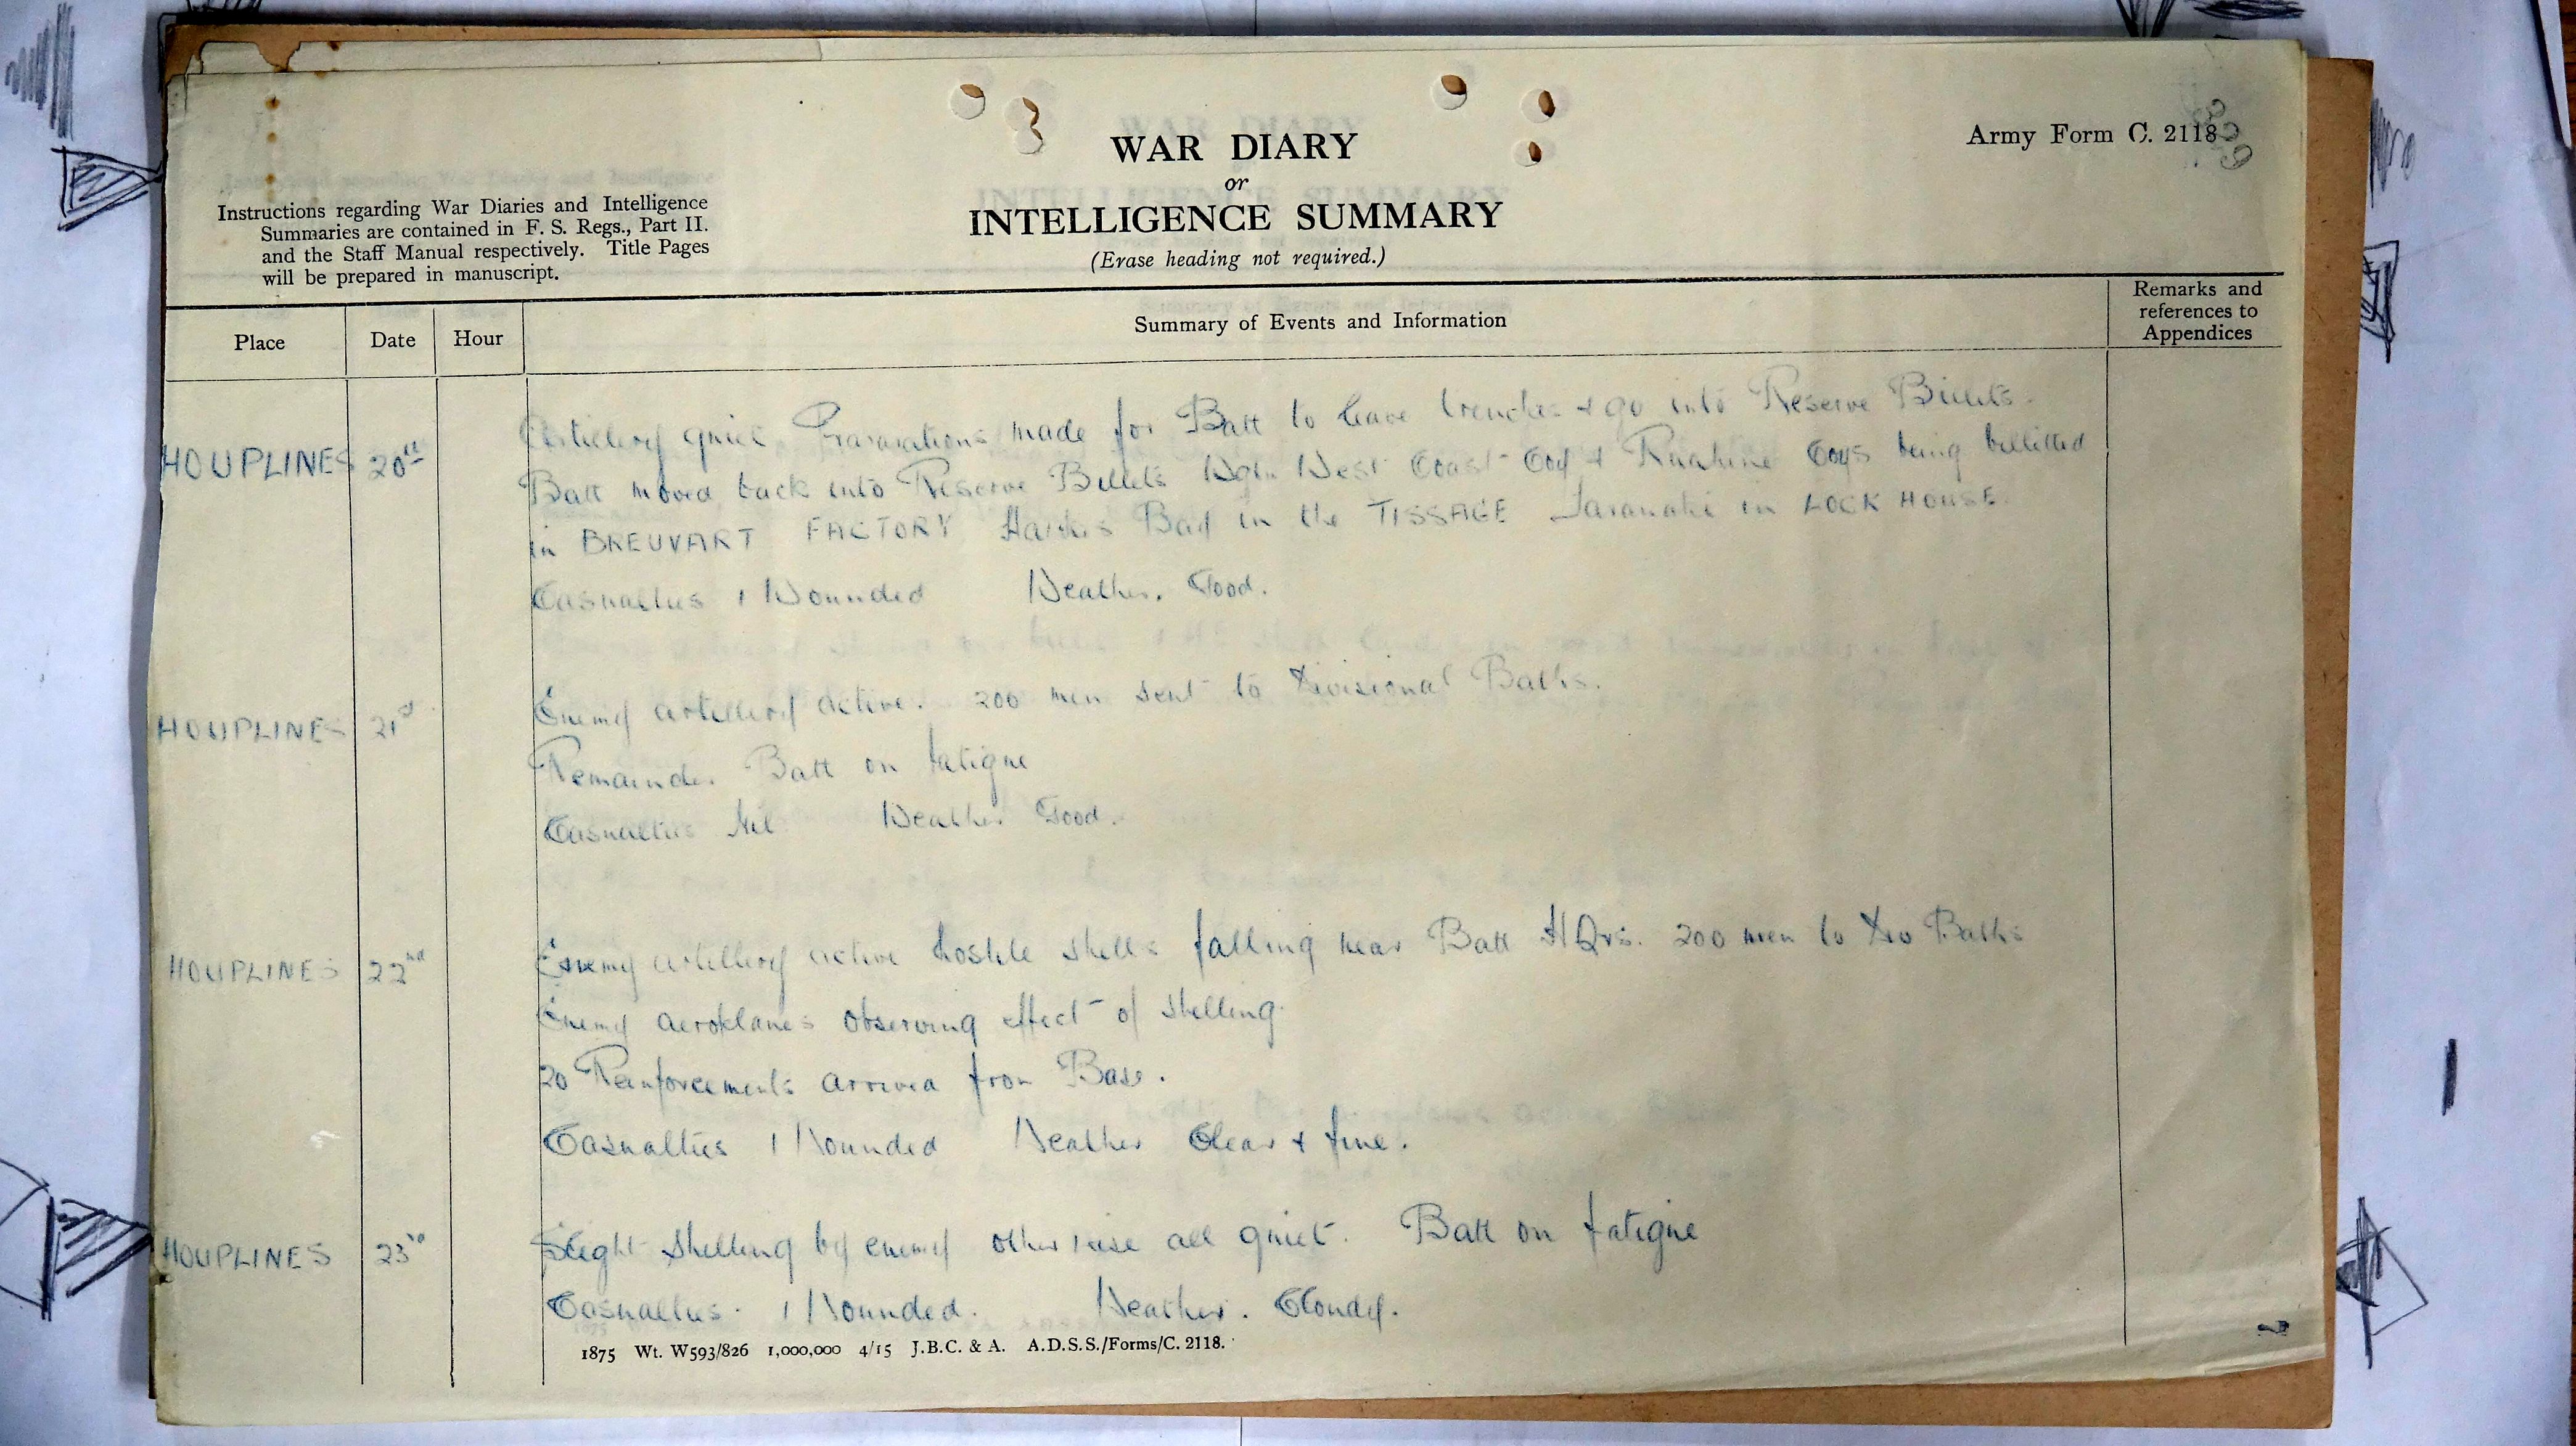 WAR DIARY
or
INTELLIGENCE SUMMARY
(Erase heading not required.)
Army Form C. 2118
Instructions regarding War Diaries and Intelligence
Summaries are contained in F. S. Regs., Part II.
and the Staff Manual respectively. Title Pages
will be prepared in manuscript.
Place Date Hour Summary of Events and Information Remarks and references to Appendices
HOUPLINES 20th Artillery quiet. Preparations made for Batt to leave trenches & go into Reserve Billets.
Batt moved back into Reserve Billets Wgtn West Coast Coy & Ruahine Coys being billitted
in BREUVART FACTORY Hawkes Bay in the TISSAGE Taranaki in LOCK HOUSE
Casualties 1 Wounded Weather. Good.
HOUPLINES 21st Enemy artillery active. 200 men sent to Divisional Baths.
Remainder Batt on fatigue
Casualties Nil Weather Good.
HOUPLINES 22nd Enemy artillery active hostile shells falling near Batt HQrs. 200 men to Div Baths
Enemy aeroplanes observing effect of shelling.
20 Reinforcements arrived from Base.
Casualties 1 Wounded Weather Clear & fine.
HOUPLINES 23rd Slight shelling by enemy otherwise all quiet. Batt on fatigue
Casualties. 1 Wounded. Weather. Cloudy.
1875 Wt. W593/826 1,000,000 4/15 J.B.C. & A. A.D.S.S./Forms/C. 2118.